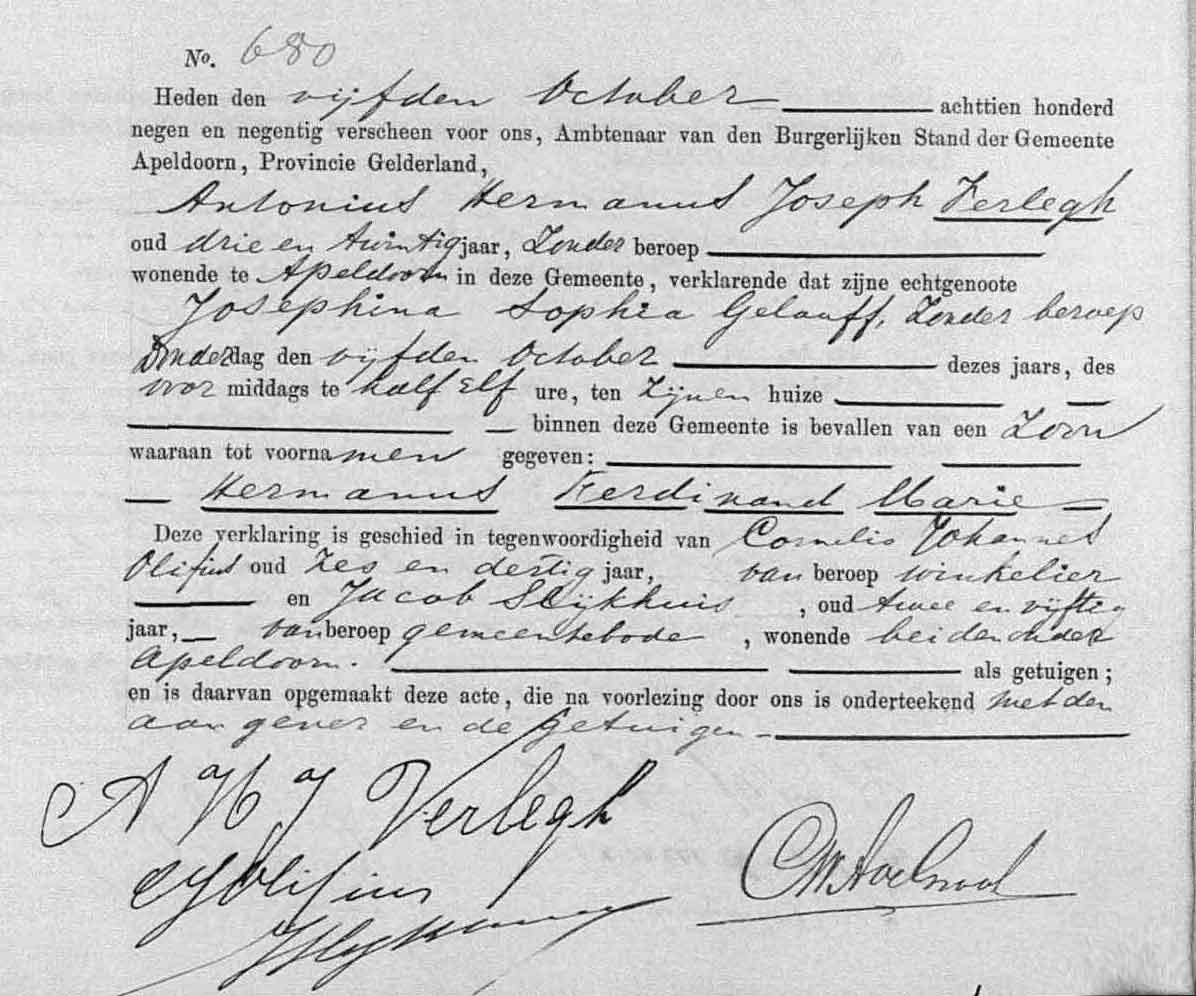 No. 680
Heden den vijfden October achttien honderd
negen en negentig verscheen voor ons, Ambtenaar van den Burgerlijken Stand der Gemeente
Apeldoorn, Provincie Gelderland,
Antonius Hermanus Joseph Verlegh
oud drie en twintig jaar, Zonder beroep
wonende te Apeldoorn in deze Gemeente, verklarende dat zijne echtgenoote
Josephina Sophia Gelauff, Zonder beroep
Donderdag den vijfden October dezes jaars, des
voor middags te half Elf ure, ten Zijnen huize
binnen deze Gemeente is bevallen van een Zoon
waaraan tot voornamen gegeven:
Hermanus Ferdinand Marie
Deze verklaring is geschied in tegenwoordigheid van Cornelis Johannes
Olifius oud Zes en dertig jaar, van beroep winkelier
en Jacob Slijkhuis, oud twee en vijftig
jaar, van beroep gemeentebode, wonende beiden onder
Apeldoorn. als getuigen;
en is daarvan opgemaakt deze acte, die na voorlezing door ons is onderteekend met den
aangever en de getuigen
A H J Verlegh
CJ Olifius